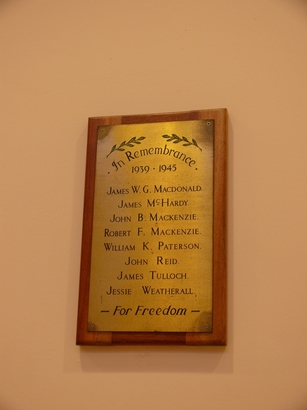 In Remembrance
1939 - 1945
JAMES W. G. MACDONALD.
JAMES McHARDY.
JOHN B. MACKENZIE.
ROBERT F. MACKENZIE.
WILLIAM K. PATERSON.
JOHN REID.
JAMES TULLOCH.
JESSIE WEATHERALL.
— For Freedom —